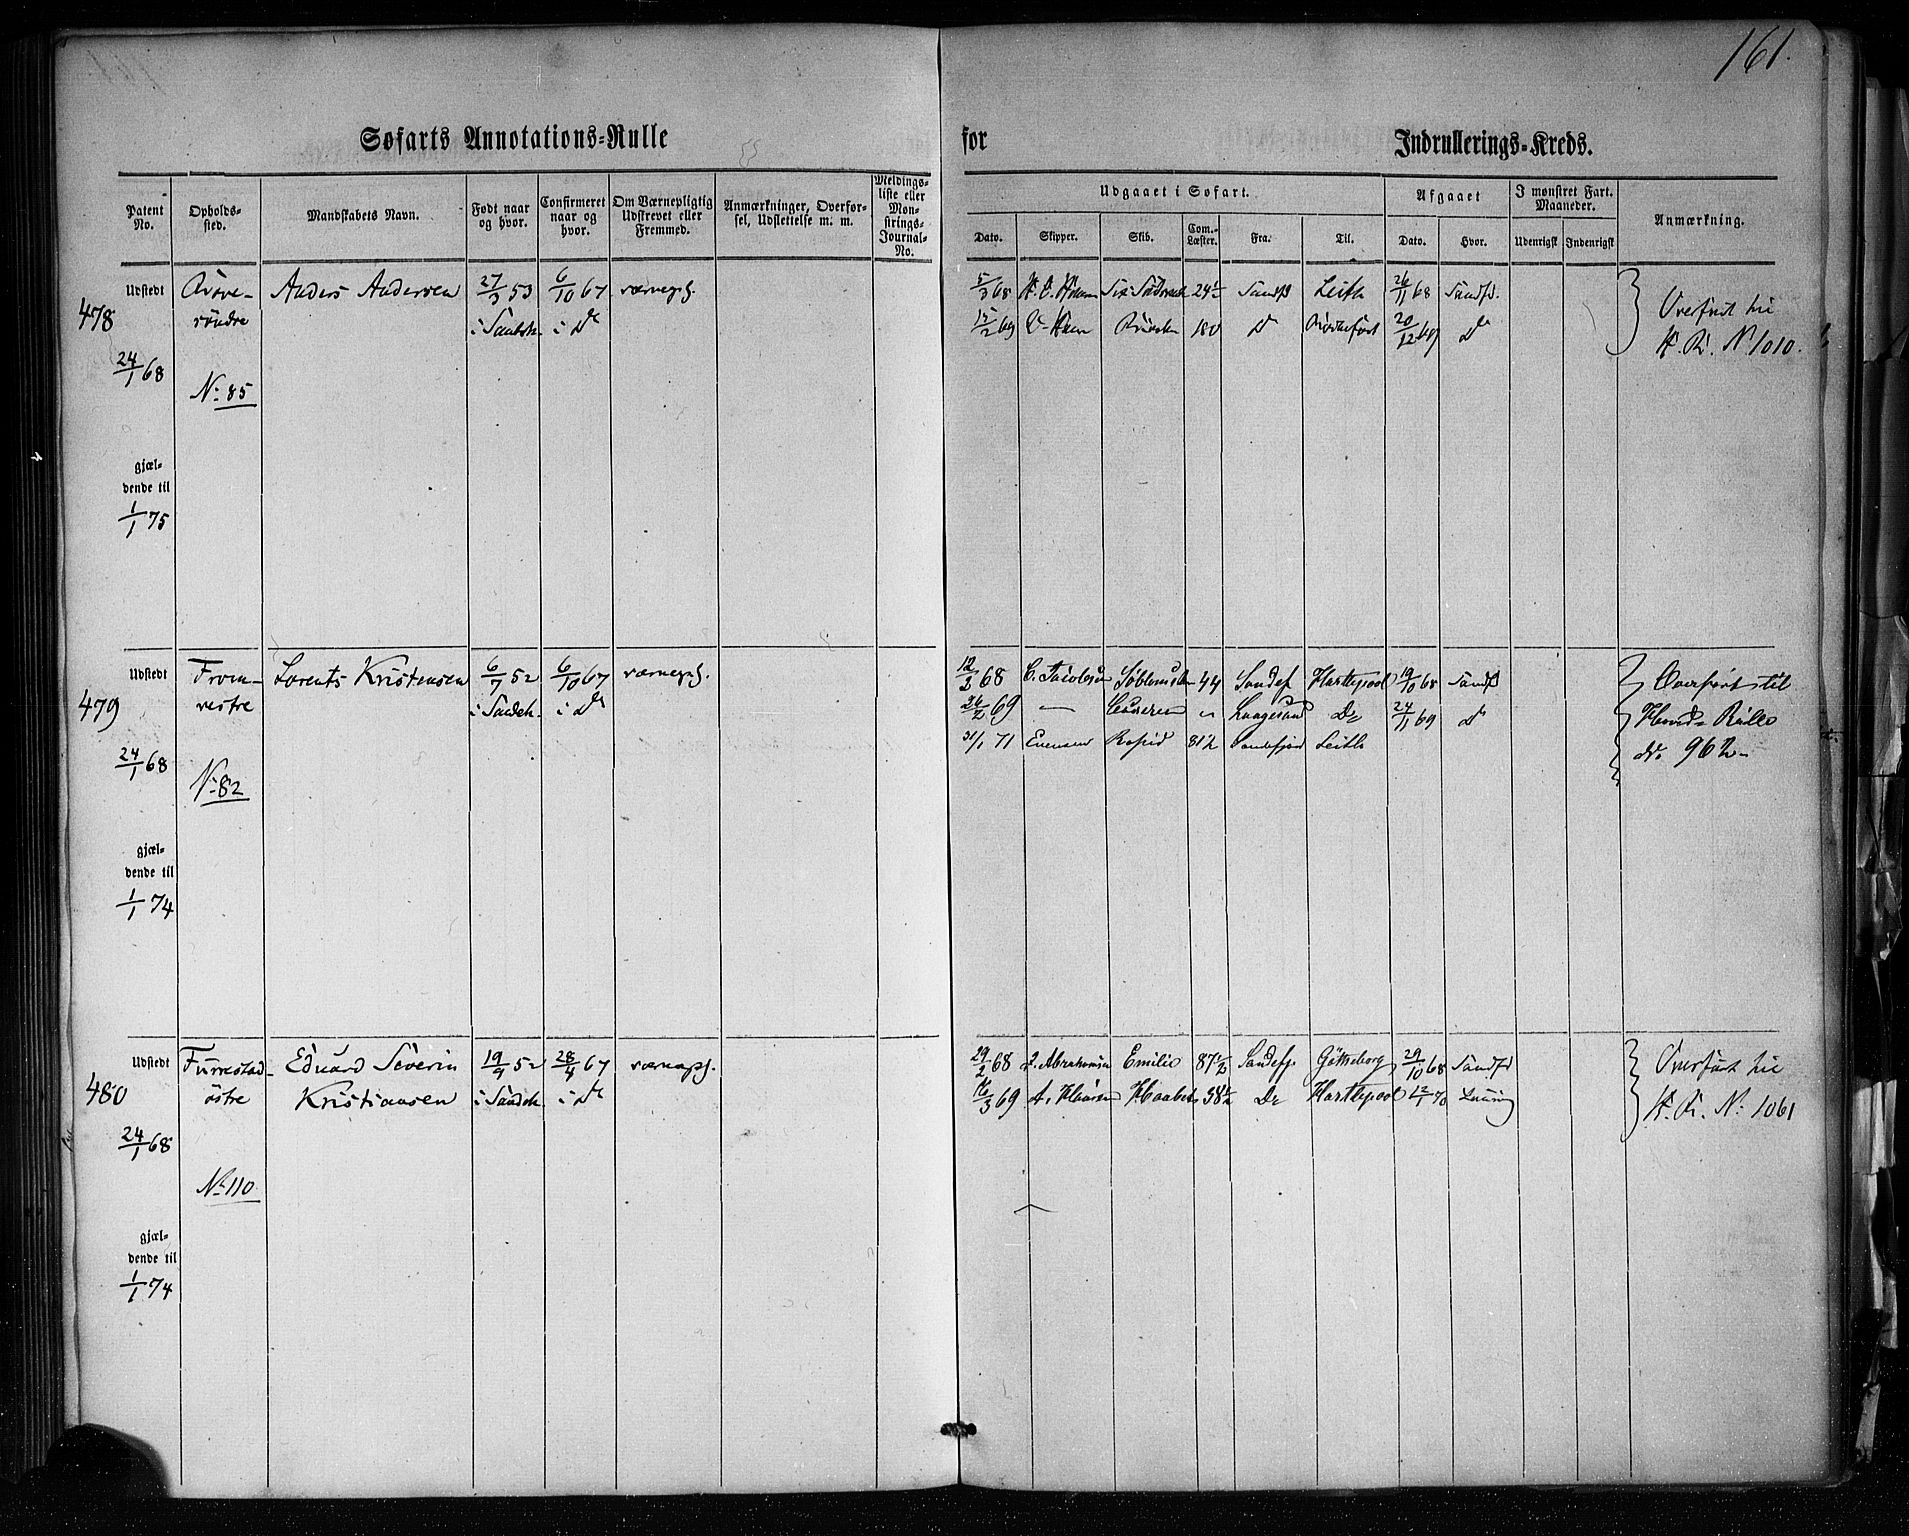 161.
Søfarts Annotations-Rulle for Indrullerings-Kreds.
Patent No.
Opholdssted.
Mandskabets Navn.
Født naar og hvor.
Confirmeret naar og hvor.
Om Værnepligtig Udskrevet eller Fremmed.
Anmærkninger, Overførsel, Udslettelse m. m.
Meldingsliste eller Mønstrings-Journal-No.
Udgaaet i Søfart.
Dato. Skipper. Skib. Com.-Læster. Fra. Til.
Afgaaet
Dato. Hvor.
I mønstret Fart. Maaneder.
Udenrigsk Indenrigsk
Anmærkning.
Udstedt
478
24/1 68
No 85
gjæl-
dende til
1/1 75
søndre
Anders Andersen
27/3 53
6/10 67 værnepl.
i Sandeh. i Do
5/3 68 24½ Sandf Leith 26/11 68 Sandfd.
15/2 69 180 Do 20/12 69 Do
Overført til
H. R. No 1010.
Udstedt
479
24/1 68
No 82
gjæl-
dende til
1/1 74
From-
vestre
Lorents Kristensen
6/7 52 6/10 67 værnepl.
i Sandeh. i Do
12/3 68 C. Jacobsen 44 Sandef Hartlepool 19/10 68 Sandf
26/2 69 — Langesund Do 24/11 69 Do
31/1 71 Evensen Rapid 81½ Sandefjord Leith
Overført til
Hoved-Rulle
No. 962-
Udstedt
480
24/1 68
No 110
gjæl-
dende til
1/1 74
Furustad-
østre
Eduard Severin
Kristiansen
19/9 52 28/4 67 værnepl.
i Sandeh. i Do
29/2 68 Abrahamsen Emilie 87½ Sandeff. Götheborg 29/10 68 Sandfd
16/3 69 A. Hansen Haabet 38½ Do Hartlepool 12/1 70 Laurvig
Overført til
H. R. No: 1061